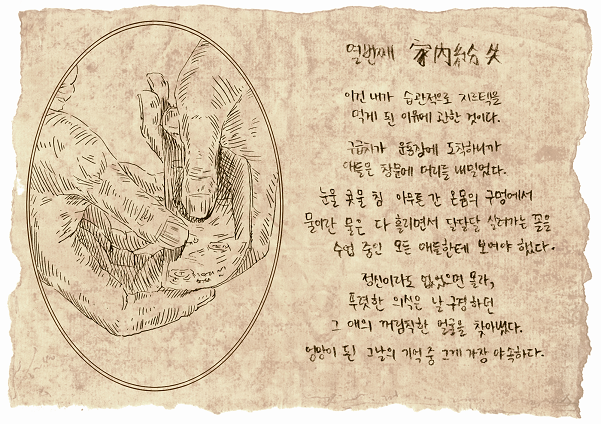 열번째 家內給失
이건 내가 습관적으로 지르텍을
먹게 된 이유에 관한 것이다.
구급차가 운동장에 도착하니까
애들은 창문에 머리를 내밀었다.
눈물 콧물 침 아무튼 간 온몸의 구멍에서
물이란 물은 다 흘리면서 달달달 실려가는 꼴을
수업 중인 모든 애들한테 보여야 했다.
정신이라도 없었으면 몰라,
뚜렷한 의식은 날 구경하던
그 애의 꺼림직한 얼굴을 찾아냈다.
엉망이 된 그날의 기억 중 그게 가장 야속하다.